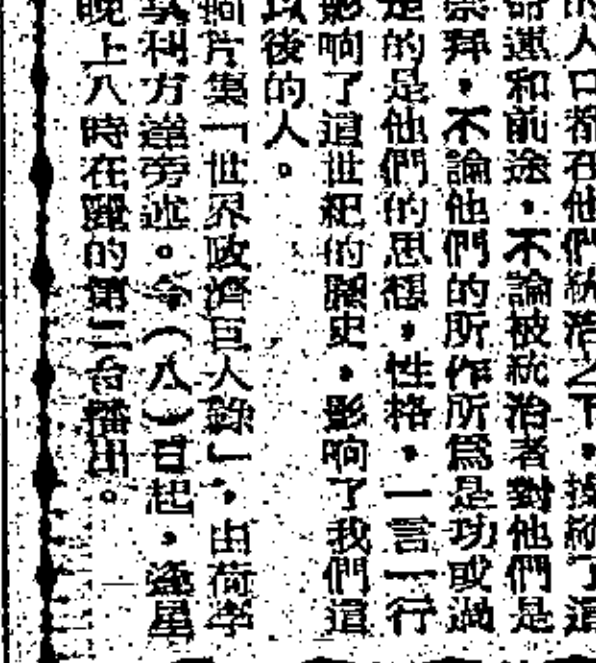 的人口都在他們統治之下，操縱了這
命運和前途。不論被統治者對他們是
崇拜，不論他們的所作所爲是功或過
是的是他們的思想，性格，一言一行
影响了這世紀的歷史，影响了我們這
以後的人。
片集「世界政濟巨人錄」，由荷李
執科方達旁述。今（八）日起，逢星
晚上八時在麗的第二台播出。